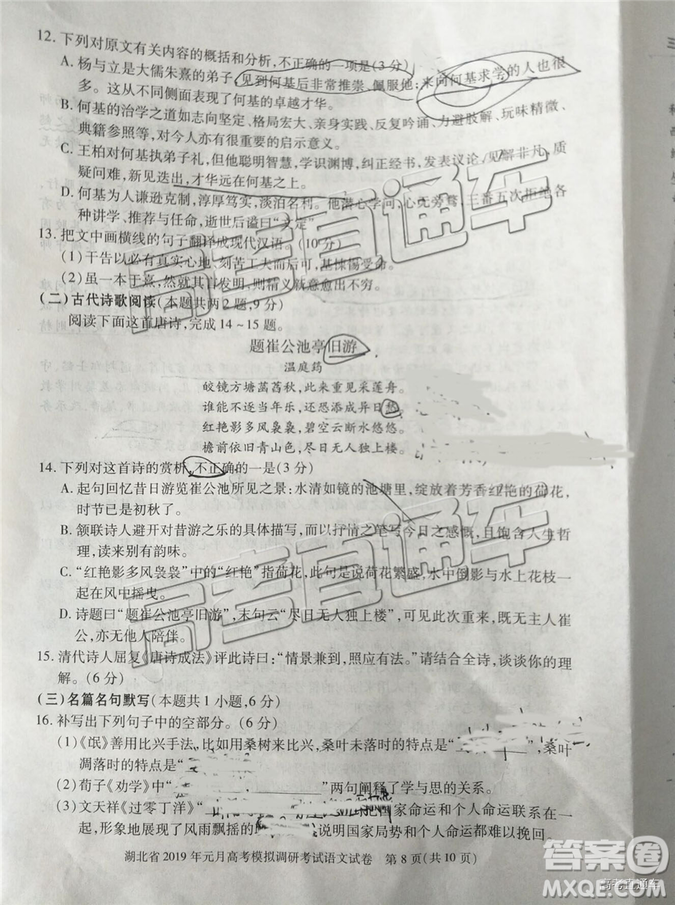 12. 下列对原文有关内容的概括和分析,不正确的一项是(3分)
A. 杨与立是大儒朱熹的弟子,见到何基后非常推崇、佩服他;来向何基求学的人也很
多。这从不同侧面表现了何基的卓越才华。
B. 何基的治学之道如志向坚定、格局宏大、亲身实践、反复吟诵、力避肢解、玩味精微、
典籍参照等,对今人亦有很重要的启示意义。
C. 王柏对何基执弟子礼,但他聪明智慧,学识渊博,纠正经书,发表议论,见解非凡,质
疑问难,新见迭出,因而才华在何基之上。
D. 何基为人谦逊克制,淳厚笃实,淡泊名利。他潜心于学问,心无旁骛,三番五次拒绝各
种讲学、推荐与任命,逝世后谥曰“文定”。
13. 把文中画横线的句子翻译成现代汉语。(10分)
(1)干告以必有真实心地、刻苦工夫而后可,基悚惕受命。
(2)虽一本于熹,然就其言发明,则精义新意愈出不穷。
(二)古代诗歌阅读(本题共两2题,9分)
阅读下面这首唐诗,完成14~15题。
题崔公池亭旧游
温庭筠
皎镜方塘菡萏秋,此来重见采莲舟。
谁能不逐当年乐,还恐添成异日愁。
红艳影多风袅袅,碧空云断水悠悠。
檐前依旧青山色,尽日无人独上楼。
14. 下列对这首诗的赏析,不正确的一是(3分)
A. 起句回忆昔日游览崔公池所见之景:水清如镜的池塘里,绽放着芳香红艳的荷花,
时节已是初秋了。
B. 颔联诗人避开对昔游之乐的具体描写,而以抒情之笔写今日之感慨,且饱含人生哲
理,读来别有韵味。
C. “红艳影多风袅袅”句中的“红艳”指荷花,此句是说荷花繁盛,水中倒影与水上花枝一
起在风中摇曳。
D. 诗题曰“题崔公池亭旧游”,末句云“尽日无人独上楼”,可见此次重来,非但无主人崔
公,亦无他人陪伴。
15. 清代诗人屈复《唐诗成法》评此诗曰:“情景兼到,照应有法。”请结合全诗,谈谈你的理
解。(6分)
(三)名篇名句默写(本题共1小题,6分)
16. 补写出下列句子中的空部分。(6分)
(1)《氓》善用比兴手法,比如用桑树来比兴,桑叶未落时的特点是“ ”,桑叶
凋落时的特点是“ ”。
(2)荀子《劝学》中“ ” 两句阐释了学与思的关系。
(3)文天祥《过零丁洋》“ ”把个人命运和个人命运联系在
一起,形象地展示了风雨飘摇 说明国家局势和个人命运已经难以挽回。
湖北省2019年元月高考模拟调研考试语文试卷 第8页(共10页)
高考直通车
高考直通车
答案圈
MXQE.COM
高考直通车